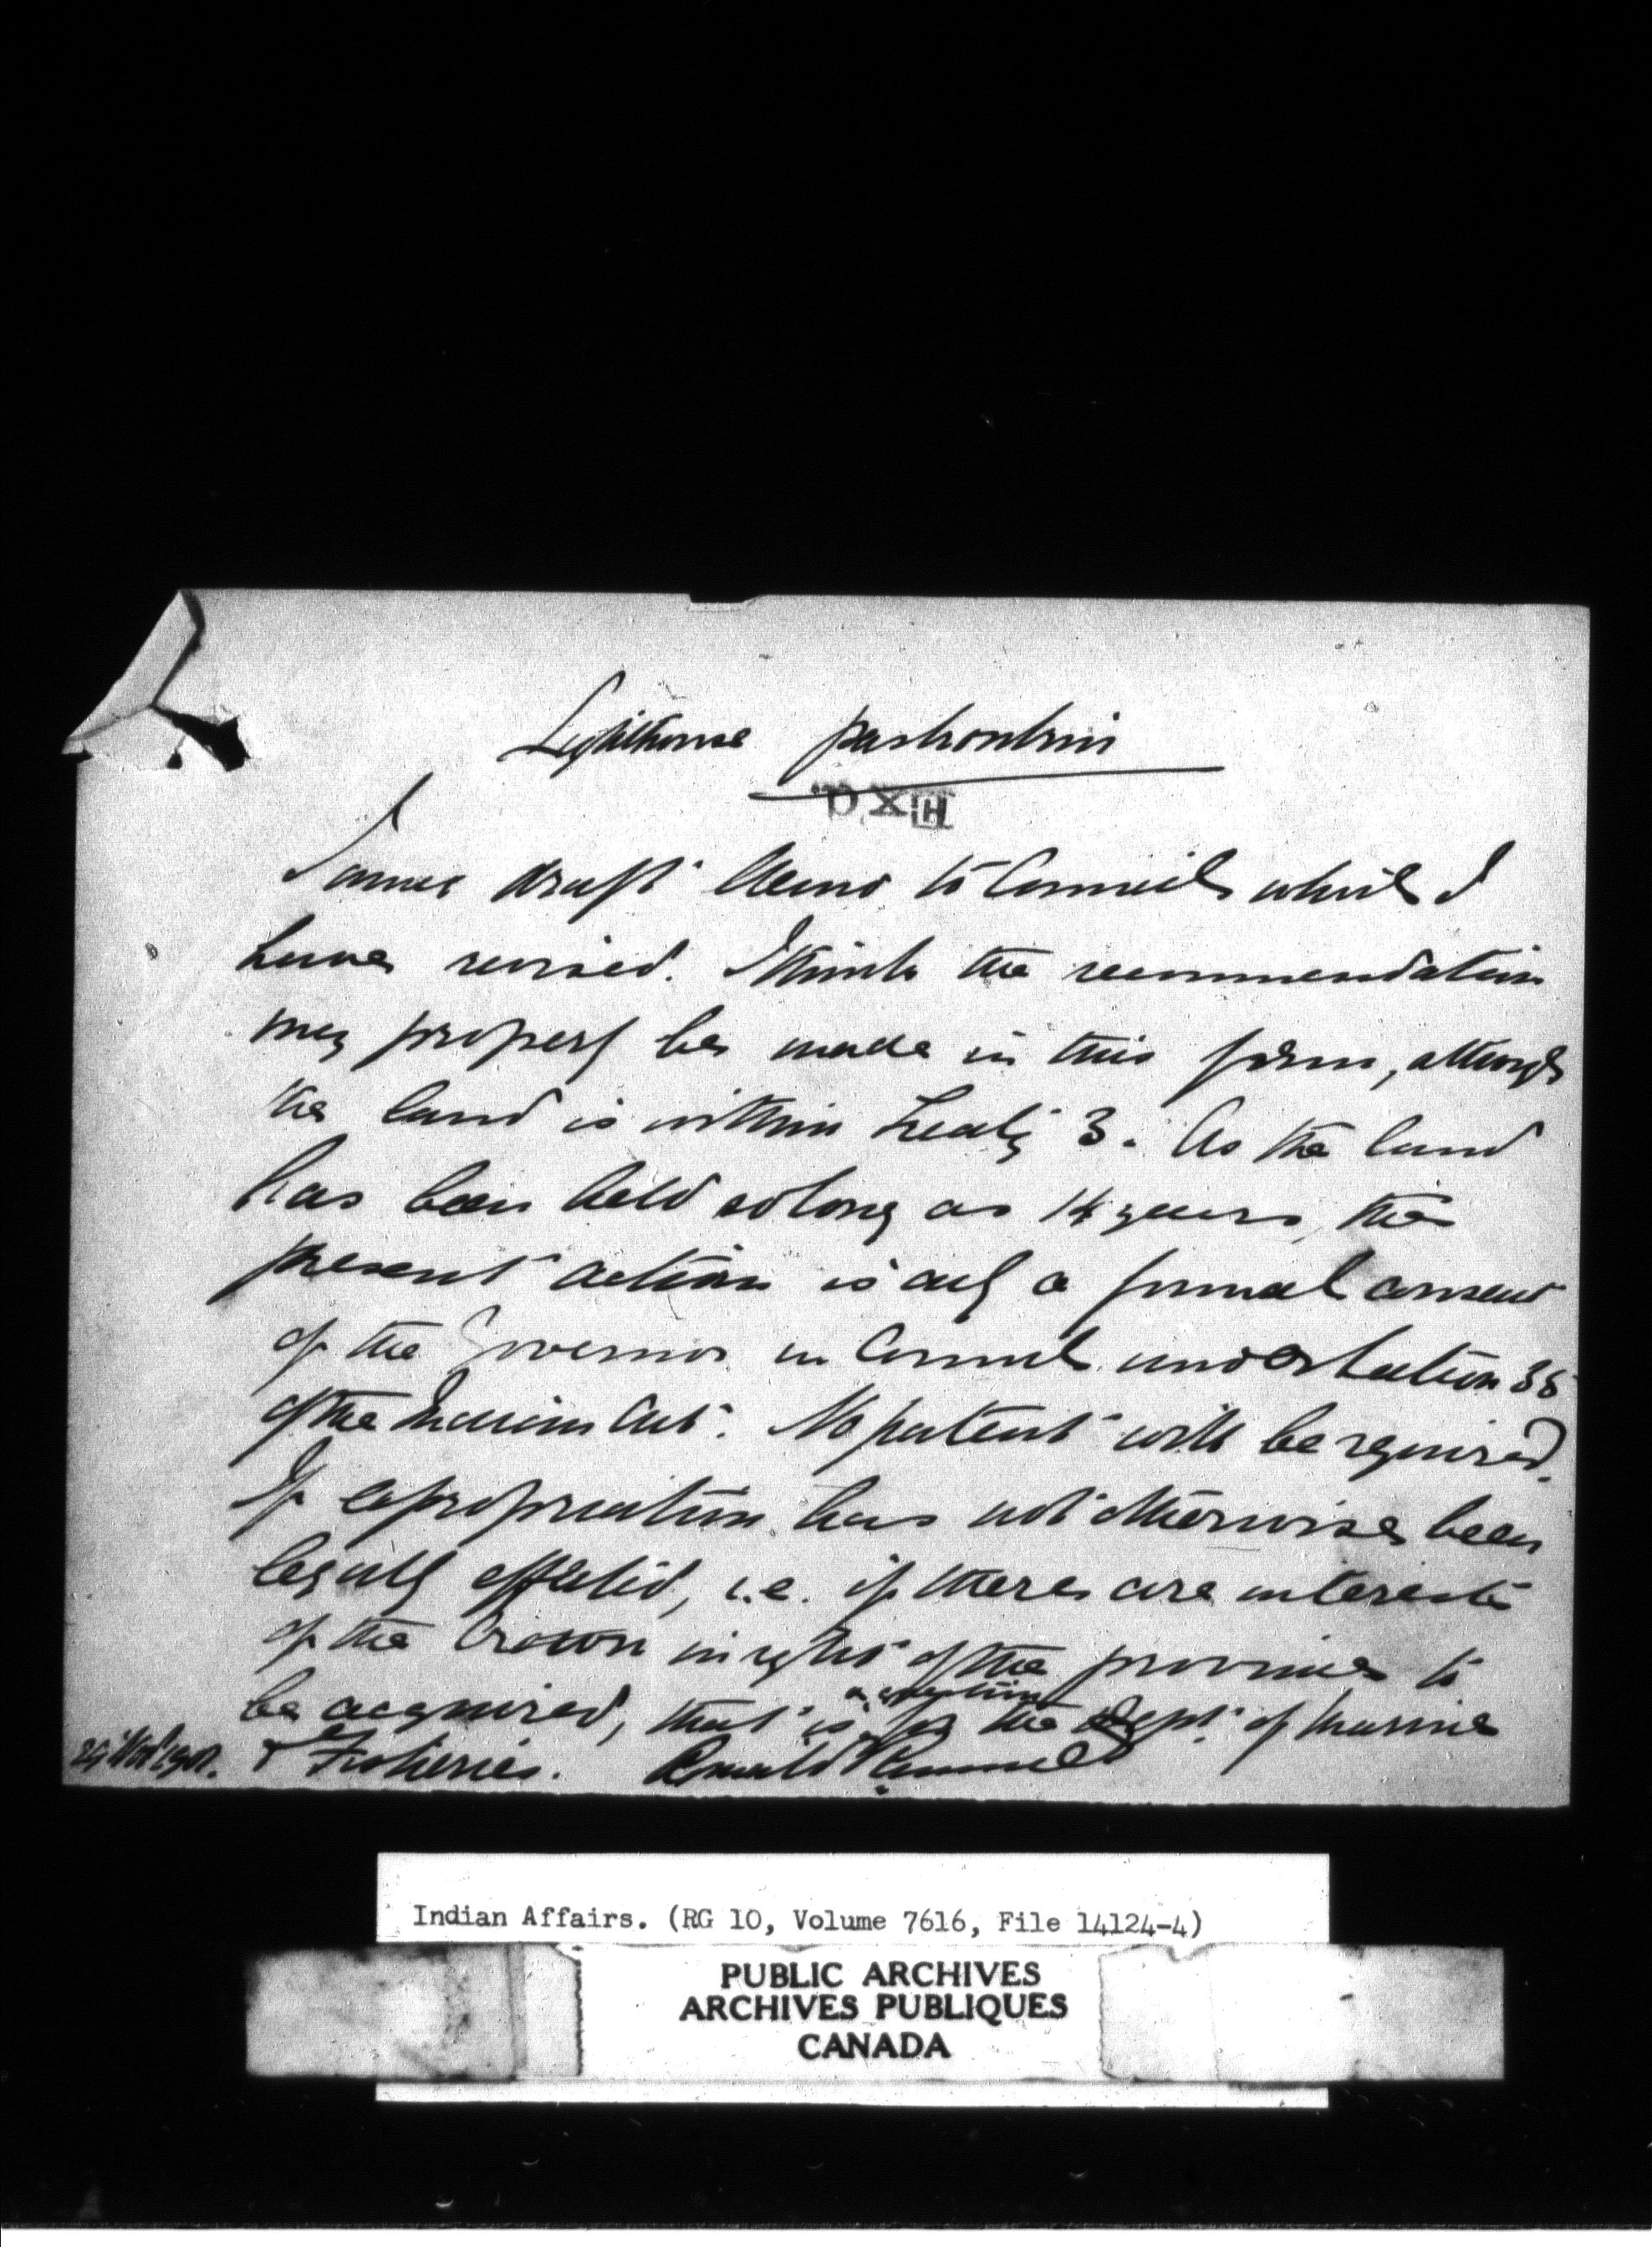 Lighthouse
I annex draft Memo to Council which I
have revised. I think the recommendation
may properly be made in this form, although
the land is within Treaty 3. As the land
has been held so long as 14 years, the
present action is only a formal consent
of the Governor in Council under Section 35
of the Indian Act. No patent will be required.
If expropriation has not otherwise been
legally effected, i.e. if there are interests
of the Crown in right of the province to
be acquired, that is a question for the Dept. of Marine
& Fisheries.
Indian Affairs. (RG 10, Volume 7616, File 14124-4)
PUBLIC ARCHIVES
ARCHIVES PUBLIQUES
CANADA